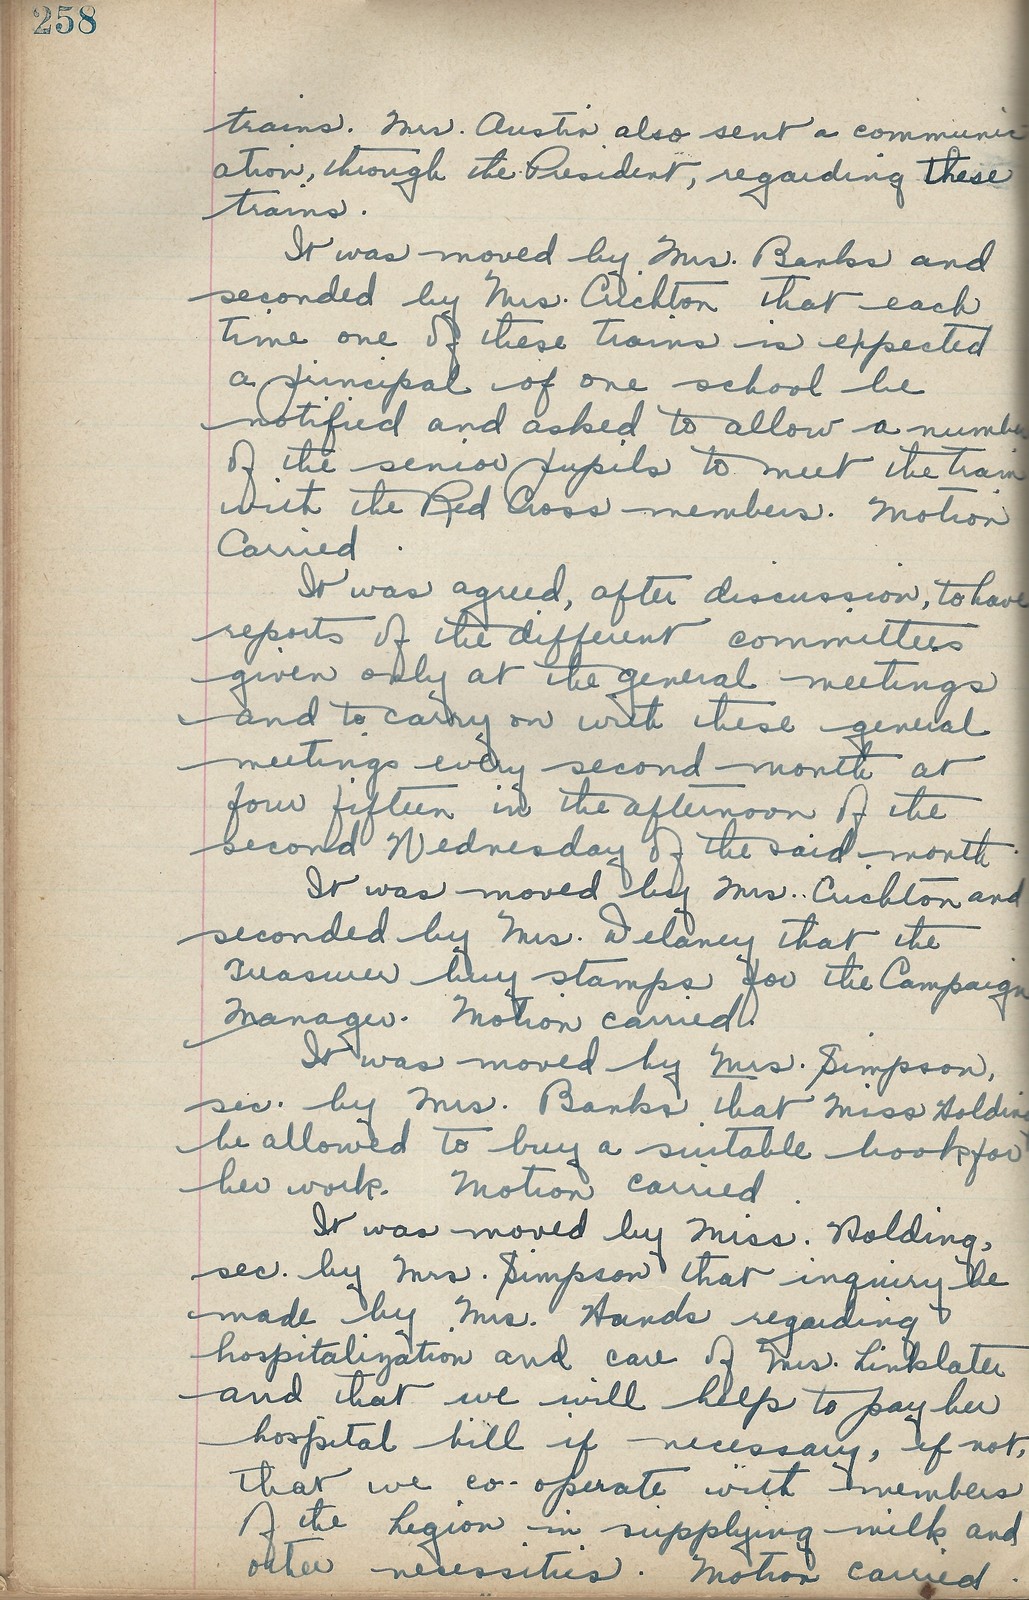 258
trains. Mrs. Austin also sent a communic
ation, through the President, regarding these
trains.
It was moved by Mrs. Banks and
seconded by Mrs. Crichton that each
time one of these trains is expected
a principal of one school be
notified and asked to allow a number
of the senior pupils to meet the train
with the Red Cross members. Motion
Carried.
It was agreed, after discussion, to have
reports of the different committees
given only at the general meetings
and to carry on with these general
meetings every second month at
four fifteen in the afternoon of the
second Wednesday of the said month.
It was moved by Mrs. Crichton and
seconded by Mrs. Delaney that the
Treasurer buy stamps for the Campaign
Manager. Motion carried.
It was moved by Mrs. Simpson,
sec. by Mrs. Banks that Miss Holding
be allowed to buy a suitable book for
her work. Motion carried.
It was moved by Miss. Holding,
sec. by Mrs. Simpson that inquiry be
made by Mrs. Hands regarding
hospitalization and care of Mrs. Linklater
and that we will help to pay her
hospital bill if necessary, if not,
that we co-operate with members
of the Legion in supplying milk and
other necessities. Motion carried.